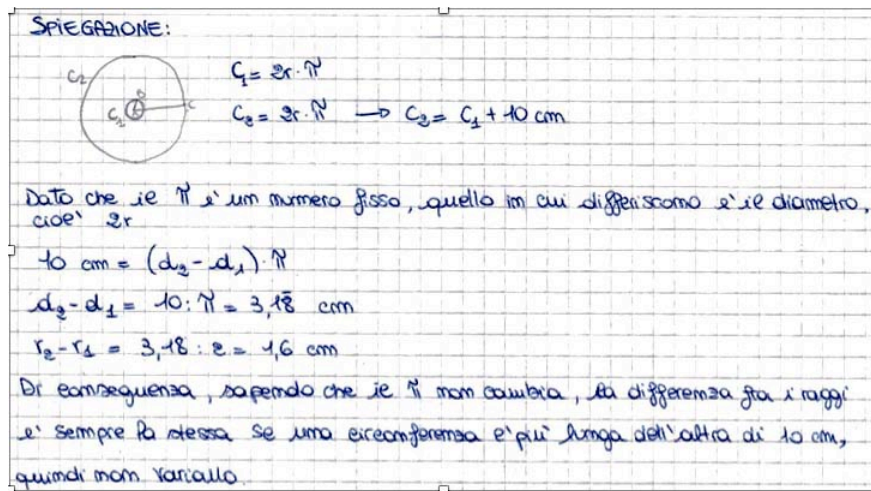 SPIEGAZIONE:
C₂ C₁ B C
C₁ = 2r · π
C₂ = 2r · π → C₂ = C₁ + 10 cm
Dato che il π è un numero fisso, quello in cui differiscono è il diametro,
cioè 2r
10 cm = (d₂ - d₁) · π
d₂ - d₁ = 10 : π = 3,18 cm
r₂ - r₁ = 3,18 : 2 = 1,6 cm
Di conseguenza, sapendo che il π non cambia, la differenza fra i raggi
è sempre la stessa se una circonferenza è più lunga dell'altra di 10 cm,
quindi non variano.